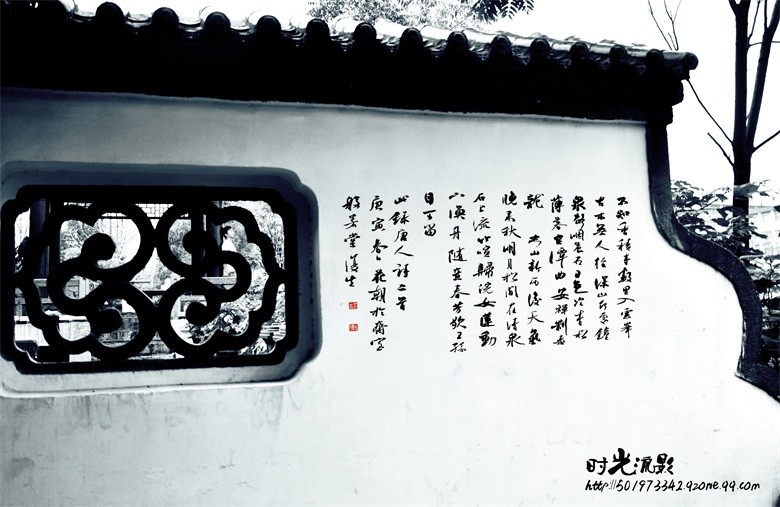 不知香積寺數里入雲峰
古木無人徑深山何處鐘
泉聲咽危石日色冷青松
薄暮空潭曲安禪制毒
龍 空山新雨後天氣
晚来秋明月松間照清泉
石上流竹喧歸浣女蓮動
下漁舟隨意春芳歇王孫
自可留
此錄唐人詩二首
庚寅春之花朝於齋
堂
时光流影
http://501973342.qzone.qq.com